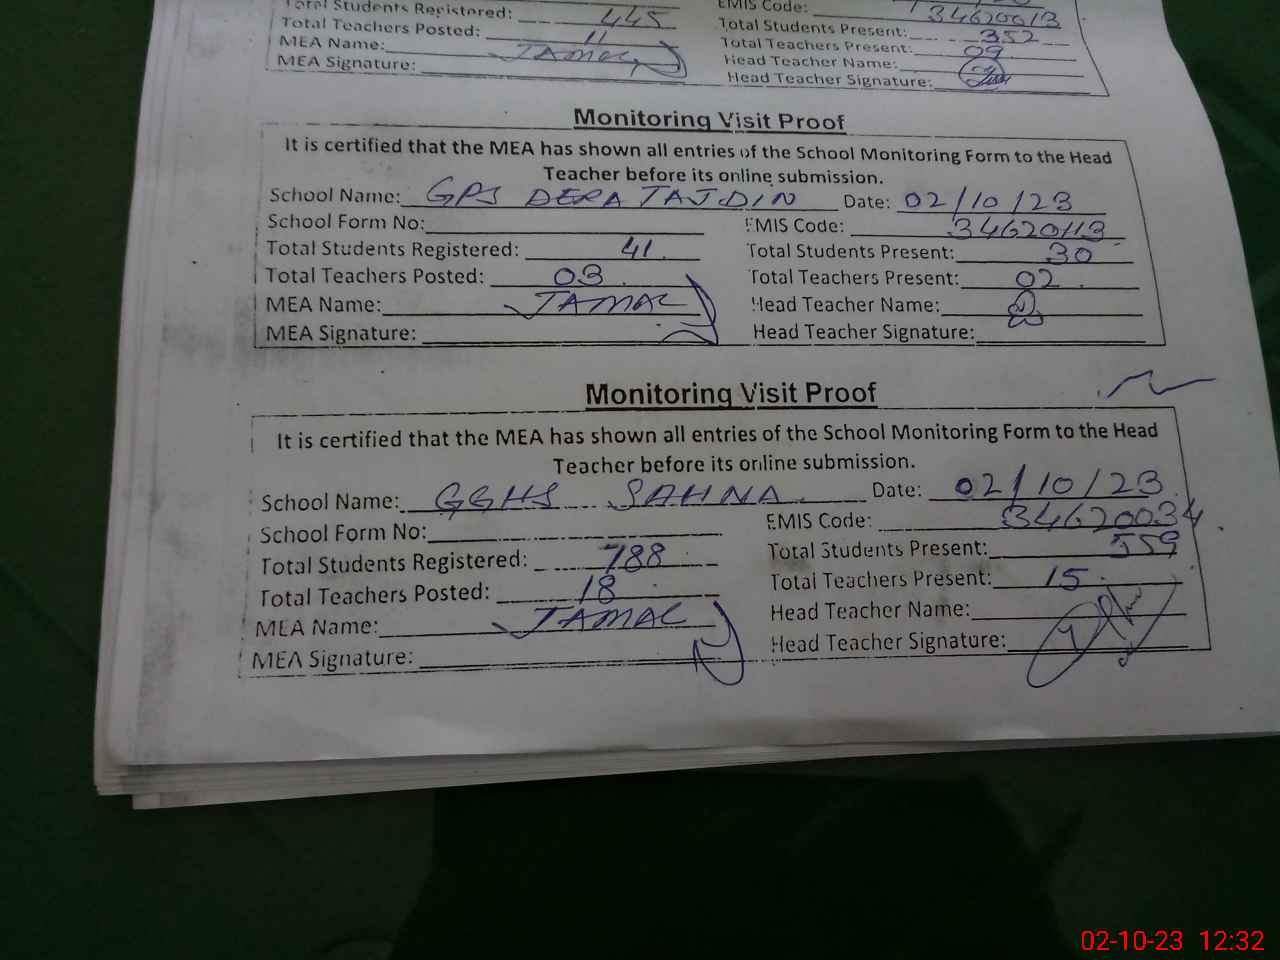 Total Students Registered: 445 EMIS Code: 34620013
Total Teachers Posted: 11 Total Students Present: 352
MEA Name: JAMAL Total Teachers Present: 09
MEA Signature: Head Teacher Name:
Head Teacher Signature:
Monitoring Visit Proof
It is certified that the MEA has shown all entries of the School Monitoring Form to the Head
Teacher before its online submission.
School Name: GPS DERA TAJDIN Date: 02/10/23
School Form No: EMIS Code: 34620113
Total Students Registered: 41 Total Students Present: 30
Total Teachers Posted: 03 Total Teachers Present: 02
MEA Name: JAMAL Head Teacher Name:
MEA Signature: Head Teacher Signature:
Monitoring Visit Proof
It is certified that the MEA has shown all entries of the School Monitoring Form to the Head
Teacher before its online submission.
School Name: GGHS SAHNA Date: 02/10/23
School Form No: EMIS Code: 34620034
Total Students Registered: 788 Total Students Present: 559
Total Teachers Posted: 18 Total Teachers Present: 15
MEA Name: JAMAL Head Teacher Name:
MEA Signature: Head Teacher Signature:
02-10-23 12:32